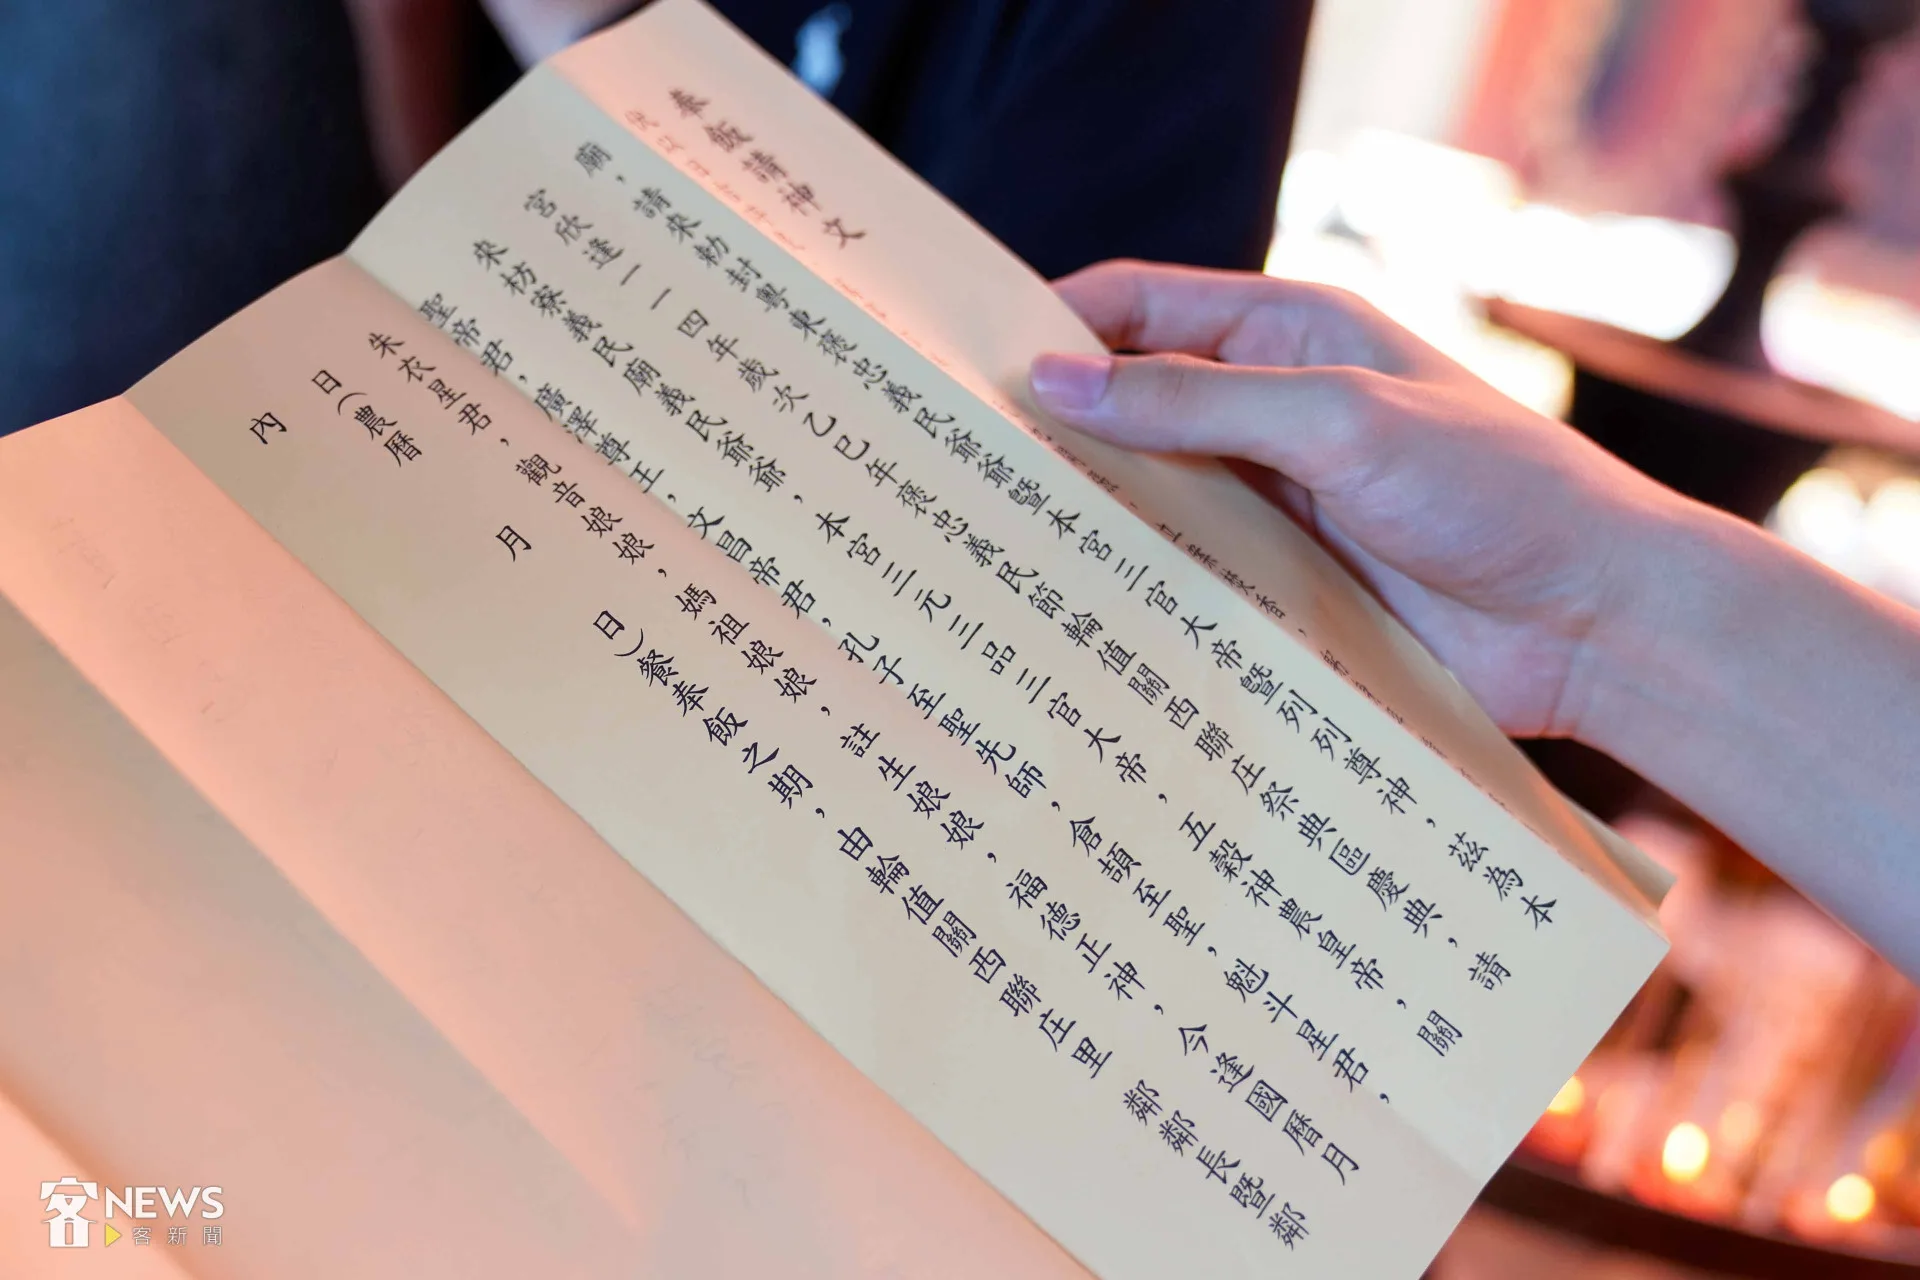 奉飯請神文
廟，請來勅封粵東褒忠義民爺爺暨本宮三官大帝暨列列尊神，茲為本
宮欣逢一一四年歲次乙巳年褒忠義民節輪值關西聯庄祭典區慶典，請
來枋寮義民廟義民爺爺，本宮三元三品三官大帝，五穀神農皇帝，關
聖帝君，廣澤尊王，文昌帝君，孔子至聖先師，倉頡至聖，魁斗星君，
朱衣星君，觀音娘娘，媽祖娘娘，註生娘娘，福德正神，今逢國曆月
日(農曆 月 日)餐奉飯之期，由輪值關西聯庄里 鄰鄰長暨鄰
內
客NEWS
客新聞